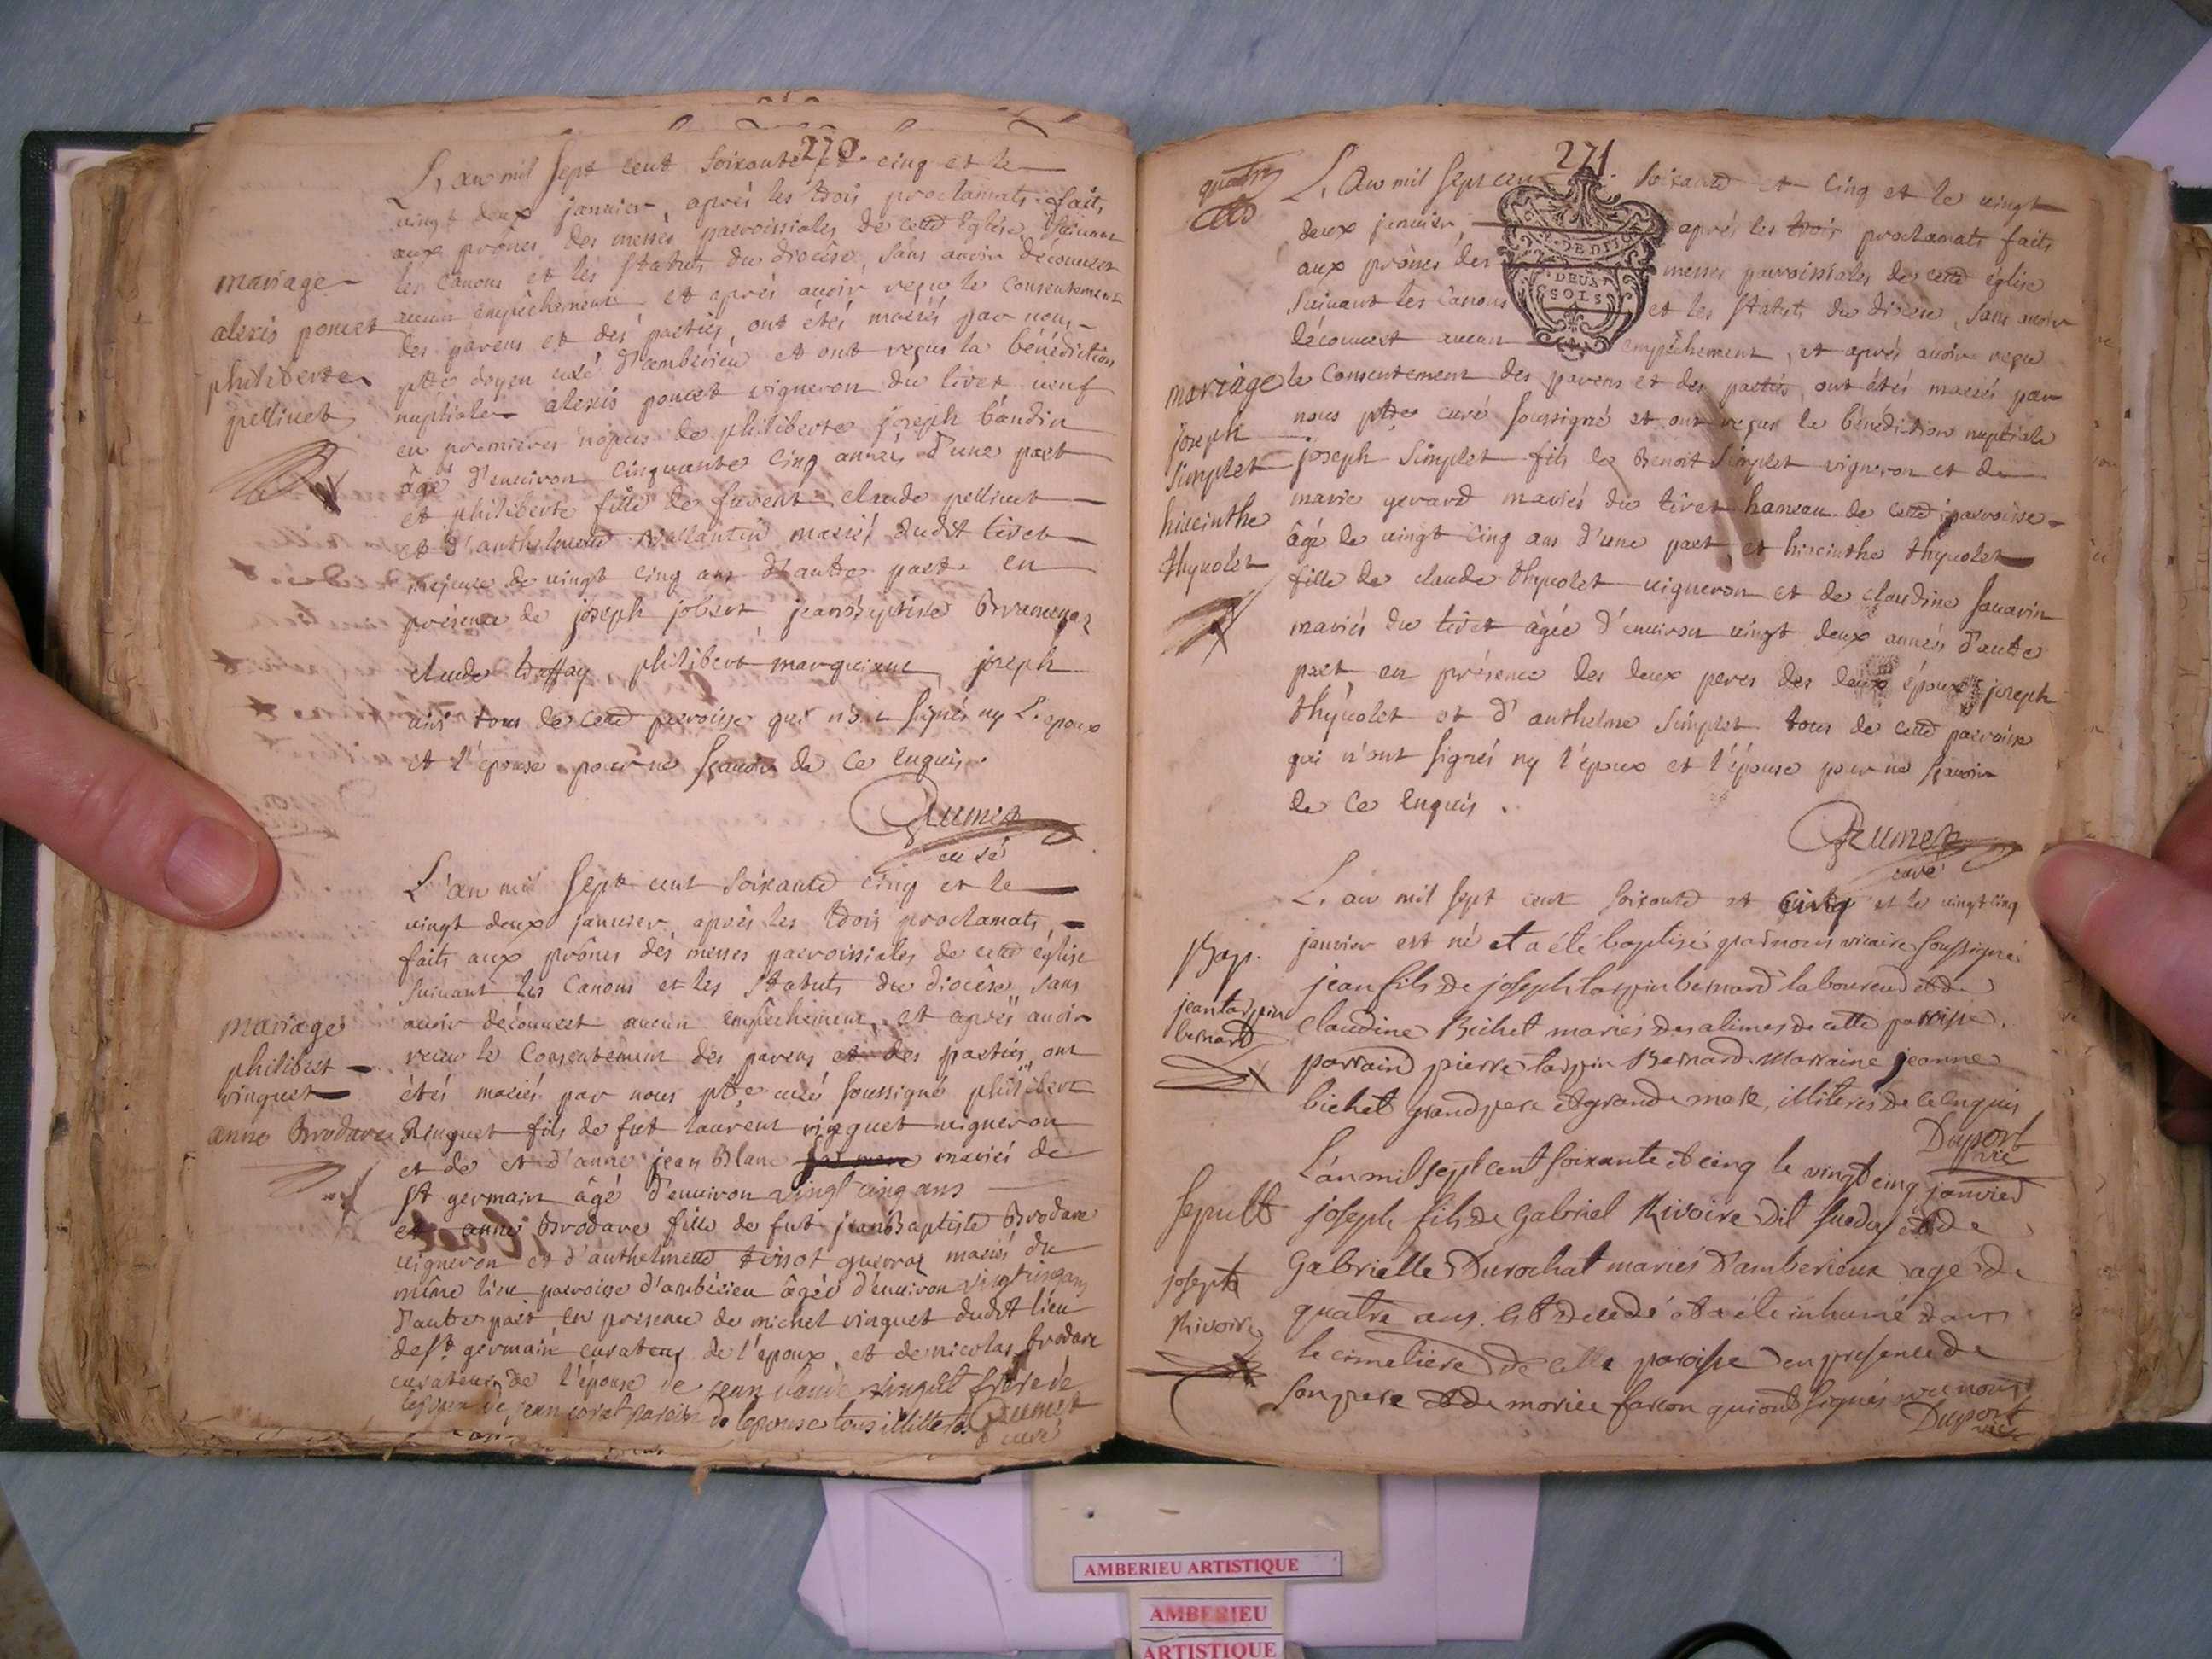 270
L'an mil sept cent soixante et cinq et le
vingt deux janvier, aprés les trois proclamats faits
aux prônes des messes parroissiales de cette Eglise, suivant
les Canons et les statuts du diocése, sans avoir découvert
aucun empêchement et aprés avoir reçu le Consentement
des parens et des parties, ont étés mariés par nous
ptre doyen curé d'ambérieu et ont reçus la bénédiction
nuptiale alexis poncet vigneron du tiret veuf
en premieres nopces de philiberte joseph baudin
âgé d'environ cinquante cinq années d'une part
et philiberte fille de furent claude pellicet
et d'anthelmette mariés dudit tiret
majeure de vingt cinq ans d'autre part en
présence de joseph jobert, jean Baptiste
claude , philibert , joseph
tous de cette parroisse qui n'ont signés ny l'epoux
et l'épouse pour ne sçavoir de ce enquis.
curé
mariage
alexis poncet
philiberte
pellicet
L'an mil sept cent soixante cinq et le
vingt deux janvier, aprés les trois proclamats,
faits aux prônes des messes parroissiales de cette eglise
suivant les Canons et les statuts du diocêse, sans
avoir découvert aucun empêchement, et aprés avoir
receu le Consentement des parens et des parties, ont
étés mariés par nous ptre curé soussigné philibert
vinguet fils de fut laurent vinguet vigneron
et de et d'anne jean Blanc mariés de
st germain âgé d'environ vingt cinq ans
et anne Brodare fille de fut jean Baptiste Brodare
vigneron et d'anthelmette tissot mariés du
même lieu parroisse d'ambérieu âgée d'environ vingt cinq ans
d'autre part en présence de michel vinguet dudit lieu
de st germain curateur de l'époux, et de nicolas brodare
curateur de l'épouse de jean claude vinguet frere de
l'epoux de jean de lepouse tous illiterés
curé
mariage
philibert
vinguet
anne Brodare
271
quatre
L'An mil sept cent soixante et cinq et le vingt
deux janvier, aprés les trois proclamats faits
aux prônes des messes parroissiales de cette église
suivant les Canons et les statuts du diocese, sans avoir
découvert aucun empêchement, et aprés avoir reçu
le Consentement des parens et des parties, ont étés mariés par
nous ptre curé soussigné et ont reçus la bénédiction nuptiale
joseph simplet fils de Benoit simplet vigneron et de
marie gerard mariés du tiret hameau de cette parroisse
âgé de vingt cinq ans d'une part, et hiacinthe thynolet
fille de claude thynolet vigneron et de claudine savarin
mariés du tiret âgée d'environ vingt deux années d'autre
part en présence des deux peres des deux époux joseph
thynolet et d'anthelme simplet tous de cette parroisse
qui n'ont signés ny l'époux et l'épouse pour ne sçavoir
de ce enquis.
curé
DEUX
SOLS
mariage
joseph
simplet
hiacinthe
thynolet
L'an mil sept cent soixante et cinq et le vingt cinq
janvier est né et a été baptisé par nous vicaire soussigné
jean fils de joseph tarpin bernard laboureur et de
Claudine Bichet mariés des alimes de cette paroisse.
parrain pierre tarpin Bernard Marraine jeanne
bichet grand pere et grande mere, illiterés de ce enquis
Duport
vic
Bap.
jean tarpin
bernard
L'an mil sept cent soixante et cinq le vingt cinq janvier
joseph fils de Gabriel Rivoire dit et de
Gabrielle Durochat mariés d'amberieux agé de
quatre ans. est décédé et a été inhumé dans
le cimetiere de cette paroisse en presence de
son pere et de qui ont signés avec nous
Duport
vic
Sepult
joseph
Rivoire
AMBERIEU ARTISTIQUE
AMBERIEU
ARTISTIQUE